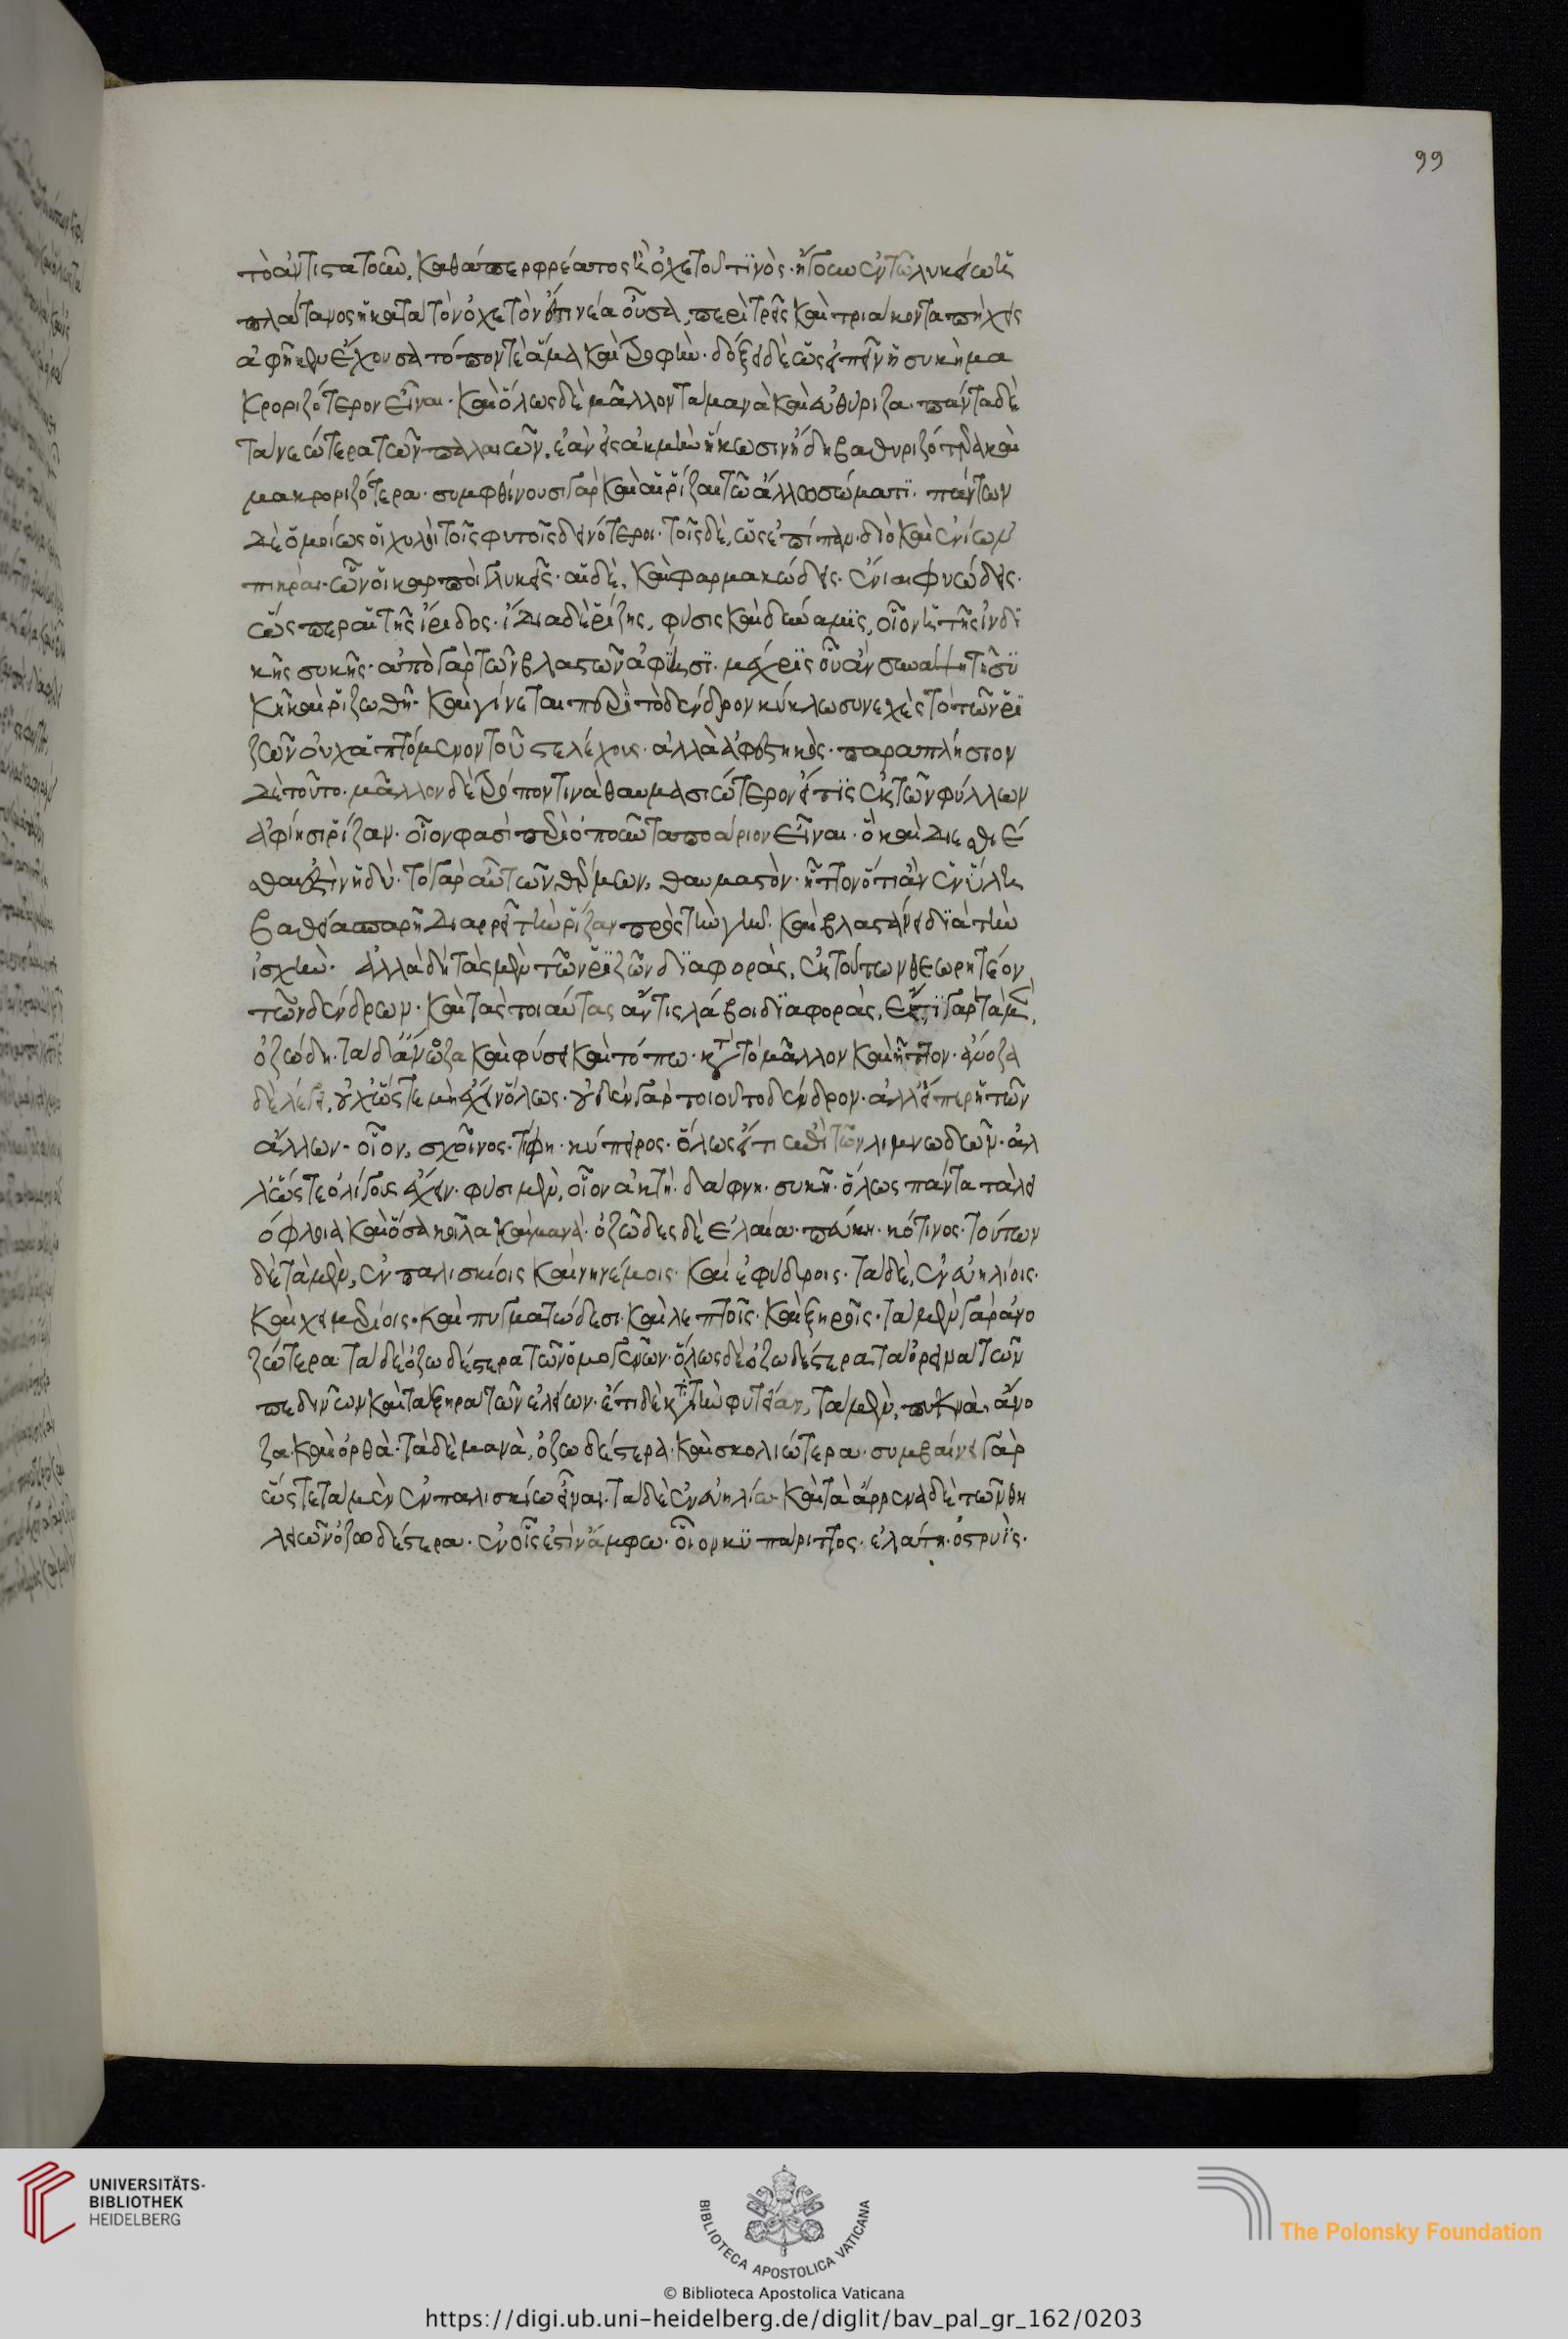 τὸ ἀντιστατοῦν, καθάπερ φρέατος ἢ ὀχετοῦ τινὸς· ἡ γοῦν ἐν τῶ λυκείω ἡ
πλάτανος ἡ κατὰ τὸν ὀχετὸν ἔτι νέα οὖσα, περὶ τρεῖς καὶ τριάκοντα πήχεις
ἀφῆκεν ἔχουσα τόπον τὲ ἅμα καὶ τροφὴν· δόξειε δὲ ὡς εἰπεῖν ἡ συκῆ μα
κροριζότερον εἶναι· καὶ ὅλως δὲ μᾶλλον τὰ μανὰ καὶ εὐθύριζα· πάντα δὲ
τὰ νεώτερα τῶν παλαιῶν, ἐὰν εἰς ἀκμὴν ἥκωσιν ἤδη βαθυριζότερα καὶ
μακροριζότερα· συμφθίνουσι γὰρ καὶ αἱ ῥίζαι τῶ ἄλλω σώματι· πάντων
δὲ ὁμοίως οἱ χυλοὶ τοῖς φυτοῖς δεινότεροι· τοῖς δὲ, ὡς ἐπίπαν· διὸ καὶ ἐνίων
πικραὶ· ὧν οἱ καρποὶ γλυκεῖς· αἱ δὲ, καὶ φαρμακώδεις· ἔνιαι εὐώδεις·
ὥσπερ αἱ τῆς ἴριδος· ἰδία δὲ ῥίζης, φύσις καὶ δύναμις, οἷον ἡ τῆς ἰνδι
κῆς συκῆς· ἀπὸ γὰρ τῶν βλαστῶν ἀφίησι· μέχρις οὗ ἂν συνάψη τῆ συ
κῆ καὶ ῥιζωθῆ· καὶ γίνεται περὶ τὸ δένδρον κύκλω συνεχὲς τὸ τῶν ῥι
ζῶν οὐχ ἁπτόμενον τοῦ στελέχους· ἀλλὰ ἀφεστηκὸς· παραπλήσιον
δὲ τοῦτο· μᾶλλον δὲ τρόπον τινὰ θαυμασιώτερον εἴ τις ἐκ τῶν φύλλων
ἀφίησι ῥίζαν· οἷον φασὶ περὶ ὀποῦντα ποάριον εἶναι· ὃ καὶ διεσθίε
σθαι ἐστὶν ἡδύ· τὸ γὰρ αὖ τῶν θέρμων, θαυμαστὸν· ἧττον ὅτι ἂν ἐν ὕλη
βαθεία σπαρῆ διαρρεῖ τὴν ῥίζαν πρὸς τὴν γῆν· καὶ βλαστάνει διὰ τὴν
ἰσχὺν· ἀλλὰ δὴ τὰς μὲν τῶν ῥιζῶν διαφορὰς, ἐκ τούτων θεωρητέον
τῶν δένδρων· καὶ τὰς τοιαύτας ἄν τις λάβοι διαφορὰς, ἔστι γὰρ τὰ μὲν,
ὀζώδη· τὰ δ' ἄνοζα καὶ φύσει καὶ τόπω· κατὰ τὸ μᾶλλον καὶ ἧττον· ἄνοζα
δὲ λέγω, οὐχ ὥστε μὴ ἔχειν ὅλως· οὐδὲν γὰρ τοιοῦτο δένδρον· ἀλλ' εἴπερ ἢ τῶν
ἄλλων· οἷον, σχοῖνος· τύφη· κύπειρος· ὅλως ἔτι ἐπὶ τῶν λιμνωδῶν· ἀλ
λ' ὥστε ὀλίγους ἔχειν· φύσι μὲν, οἷον ἀκτὴ· δάφνη· συκῆ· ὅλως πάντα τὰ λει
όφλοια καὶ ὅσα κοῖλα καὶ μανὰ· ὀζῶδες δὲ ἐλαία· πεύκη· κότινος· τούτων
δὲ τὰ μὲν, ἐν παλισκίοις καὶ νηνέμοις· καὶ ἐφύδροις· τὰ δὲ, ἐν εὐηλίοις·
καὶ χειμερίοις· καὶ πνγματώδεσι· καὶ λεπτοῖς· καὶ ξηροῖς· τὰ μὲν γὰρ ἀνο
ζώτερα· τὰ δὲ ὀζωδέστερα τῶν ὁμογενῶν· ὅλως δὲ ὀζωδέστερα τὰ ὀρεινὰ τῶν
πεδεινῶν καὶ τὰ ξηρὰ τῶν ἑλείων· ἔτι δὲ κατὰ τὴν φυτείαν, τὰ μὲν, πυκνὰ, ἄνο
ζα καὶ ὀρθὰ· τὰ δὲ μανὰ, ὀζωδέστερα καὶ σκολιώτερα· συμβαίνει γὰρ
ὥστε τὰ μὲν ἐν παλισκίω εἶναι· τὰ δὲ ἐν εὐηλίω· καὶ τὰ ἄρρενα δὲ τῶν θη
λειῶν ὀζωδέστερα· ἐν οἷς ἐστὶν ἄμφω· οἷον κυπάριττος· ἐλάτη· ὀστρυῒς·
99
UNIVERSITÄTS-
BIBLIOTHEK
HEIDELBERG
BIBLIOTECA APOSTOLICA VATICANA
The Polonsky Foundation
© Biblioteca Apostolica Vaticana
https://digi.ub.uni-heidelberg.de/diglit/bav_pal_gr_162/0203